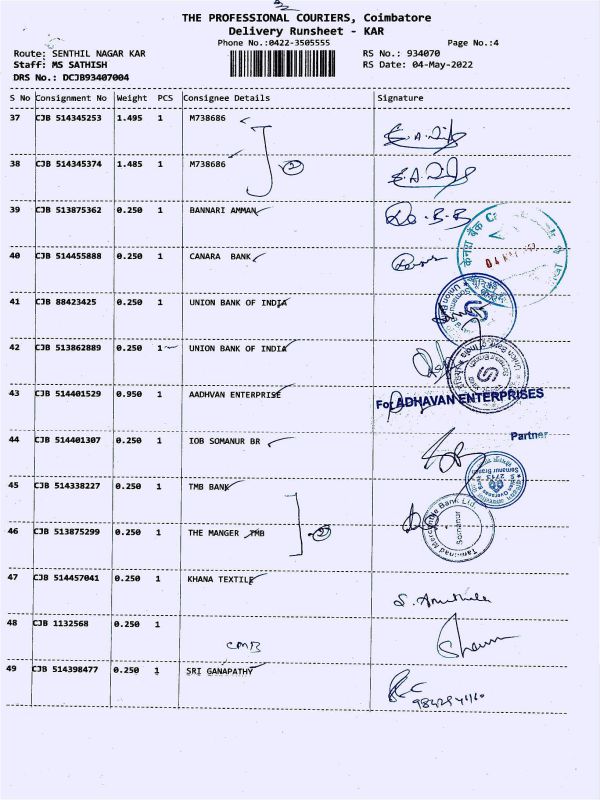 THE PROFESSIONAL COURIERS, Coimbatore
Delivery Runsheet - KAR
Phone No.:0422-3505555
Page No.:4
Route: SENTHIL NAGAR KAR
RS No.: 934070
Staff: MS SATHISH
RS Date: 04-May-2022
DRS No.: DCJB93407004
S No Consignment No Weight PCS Consignee Details Signature
37 CJB 514345253 1.495 1 M738686
38 CJB 514345374 1.485 1 M738686
2
39 CJB 513875362 0.250 1 BANNARI AMMAN
40 CJB 514455888 0.250 1 CANARA BANK
41 CJB 88423425 0.250 1 UNION BANK OF INDIA
42 CJB 513862889 0.250 1 UNION BANK OF INDIA
43 CJB 514401529 0.950 1 AADHVAN ENTERPRISE
For ADHAVAN ENTERPRISES
Partner
44 CJB 514401307 0.250 1 IOB SOMANUR BR
45 CJB 514338227 0.250 1 TMB BANK
Tamilnad Mercantile Bank Ltd
Somanur
46 CJB 513875299 0.250 1 THE MANGER TMB
2
47 CJB 514457041 0.250 1 KHANA TEXTILE
48 CJB 1132568 0.250 1
CMB
49 CJB 514398477 0.250 1 SRI GANAPATHY